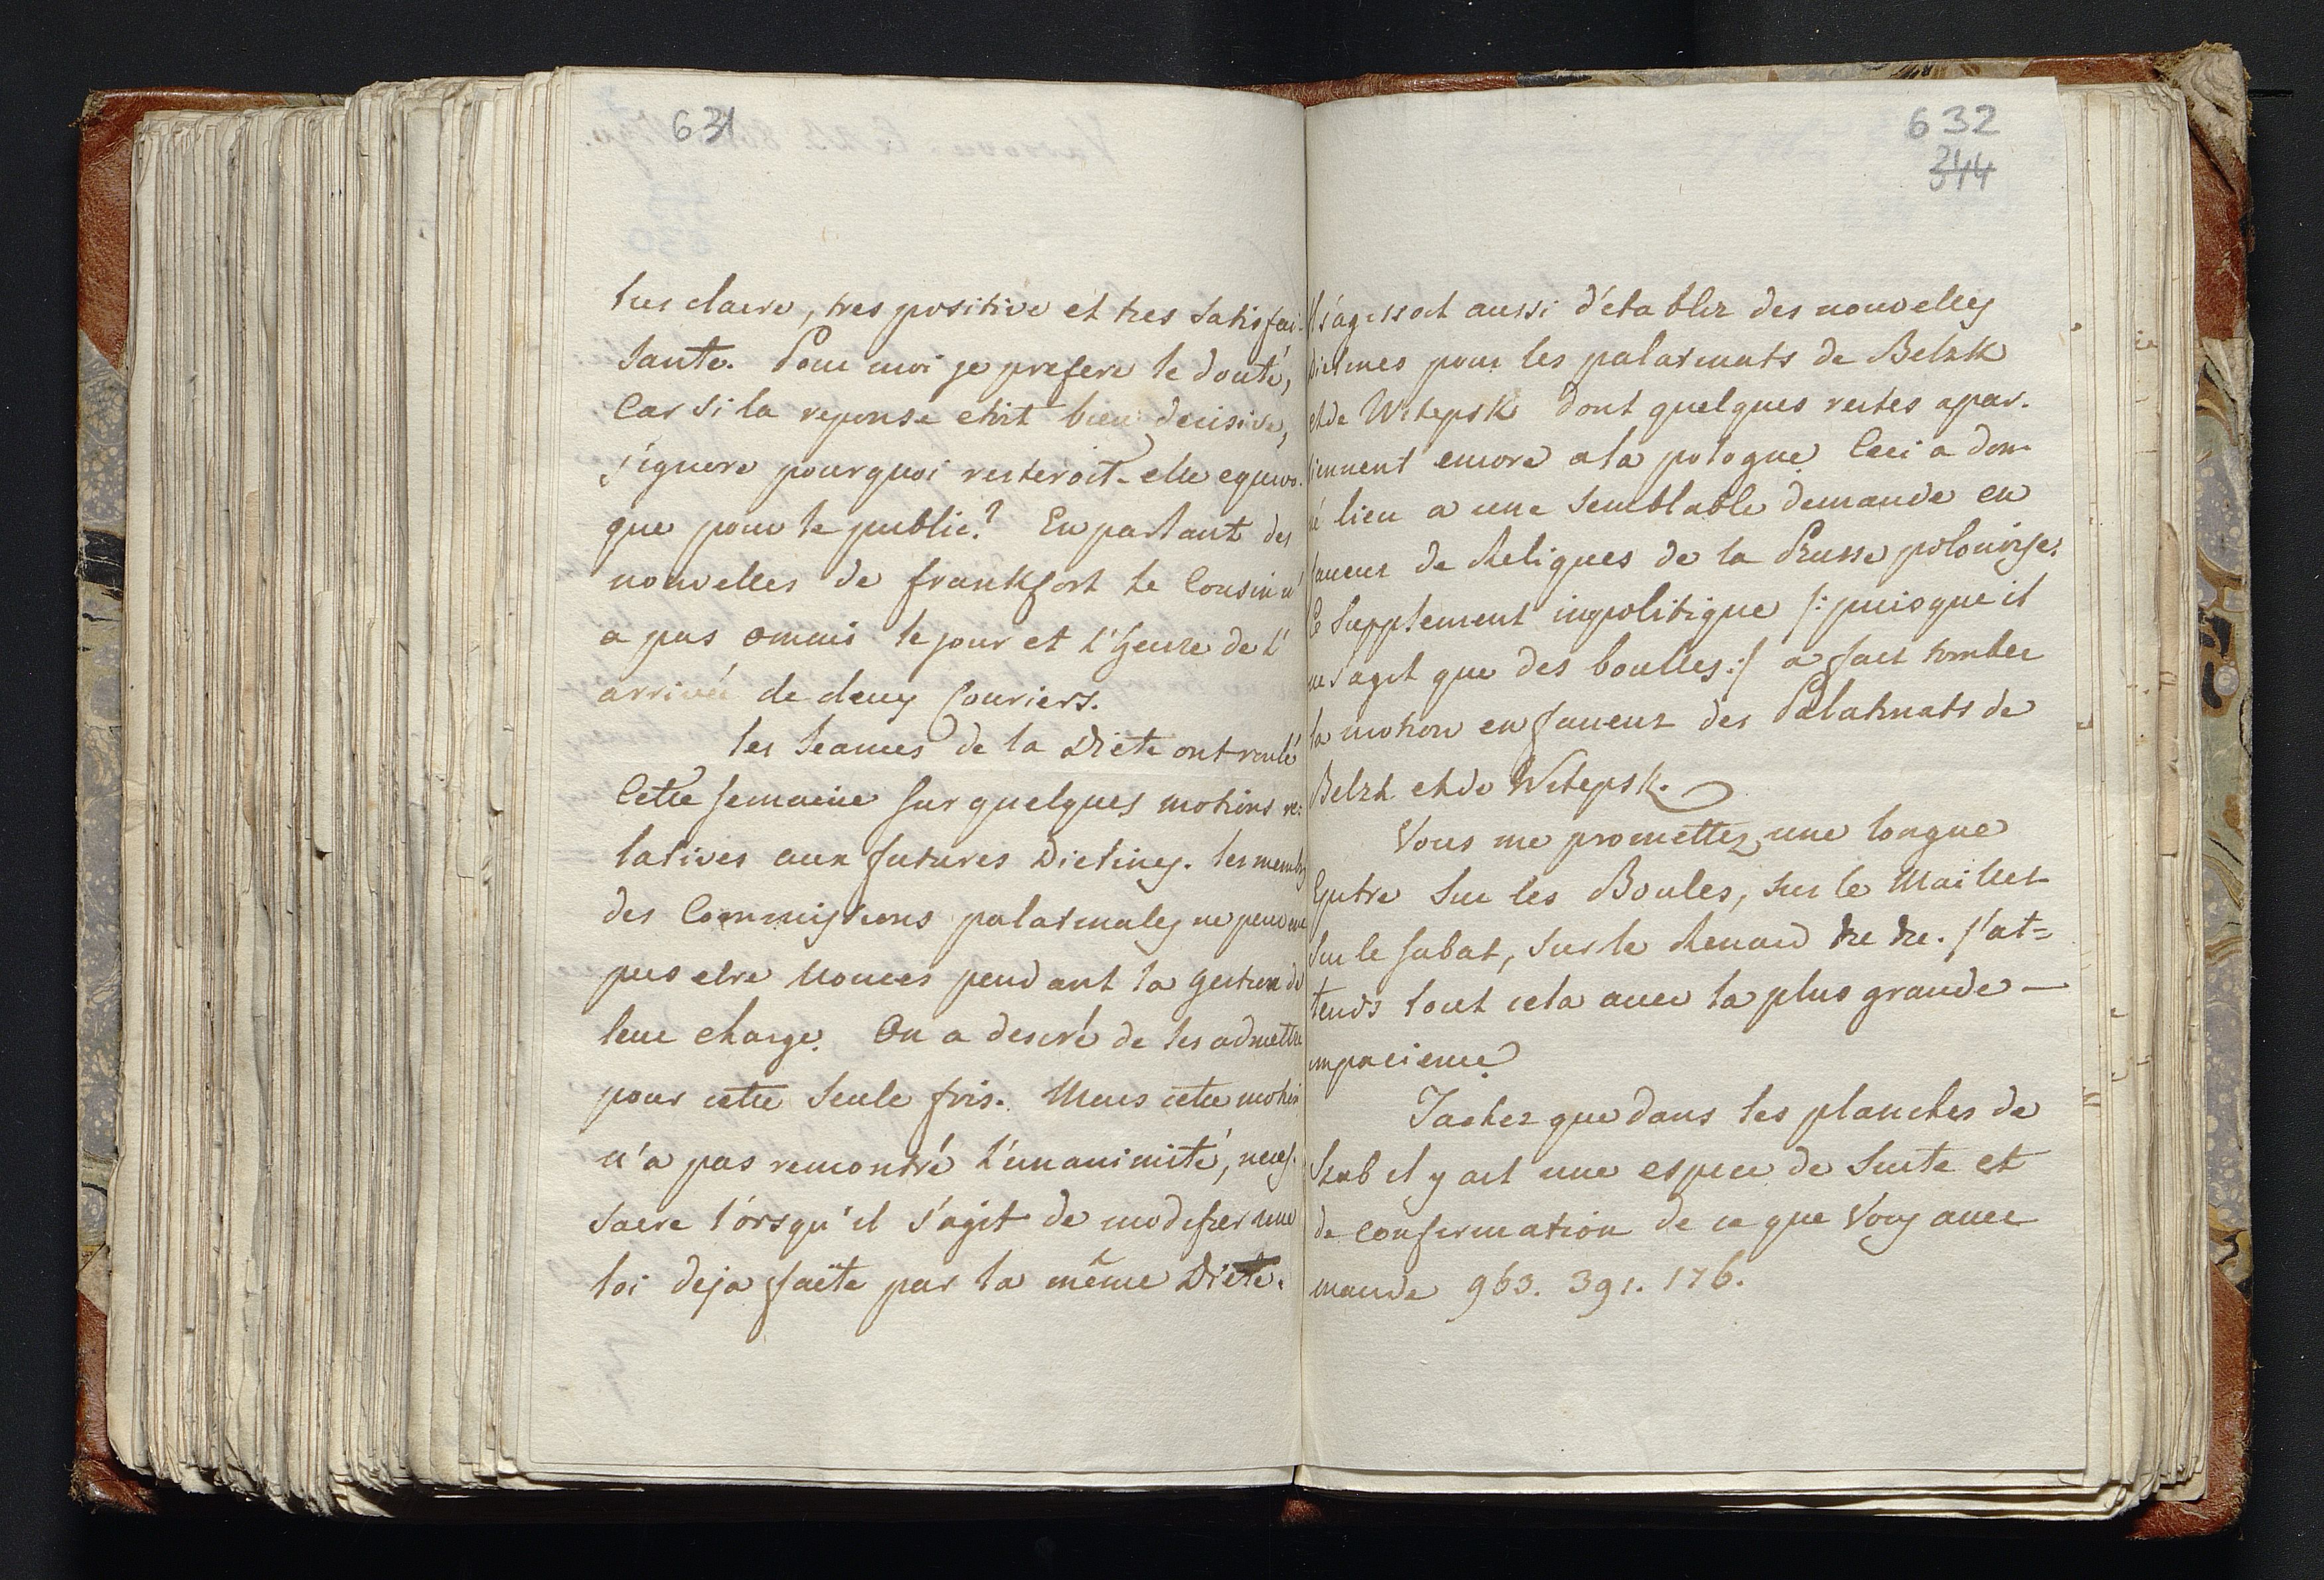 631
tres claire, tres positive et tres satisfai-
sante. Pour moi je prefere le doute,
Car si la reponse etoit bien decisive,
j'ignore pourquoi resteroit-elle equivo-
que pour le public? En parlant des
nouvelles de frankfort le Cousin n'
a pas omais le jour et l'heure de l'
arrivée de deux Couriers.
les Seances de la Diete ont roulé
Cette semaine sur quelques motions re-
latives aux futures Dietines. les membres
des Commissions palatinales ne peuvent
pas etre Nonces pendant la gestion de
leur charge. On a desiré de les admettre
pour cette seule fois. Mais cette motion
n'a pas rencontré l'unanimité, neces-
saire lorsqu'il s'agit de modifier une
loi deja faite par la même Diete.
632
344
Il s'agissoit aussi d'etablir des nouvelles
Dietines pour les palatinats de Belzk
et de Witepsk dont quelques restes apar-
tiennent encore a la pologne Ceci a don-
né lieu a une semblable demande en
faveur de Reliques de la Prusse polonoise.
Ce Supplement inpolitique /: puisque il
ne s'agit que des boulles :/ a fait tomber
la motion en faveur des Palatinats de
Belzk et de Witepsk.
Vous me promettez une longue
Epitre sur les Boules, sur le Maillet
sur le Sabat, sur le Renard &c &c. j'at=
tends tout cela avec la plus grande —
impacience
Tachez que dans les planches de
Szub il y ait une espece de suite et
de confirmation de ce que Vous avez
mandé 963. 391. 176.